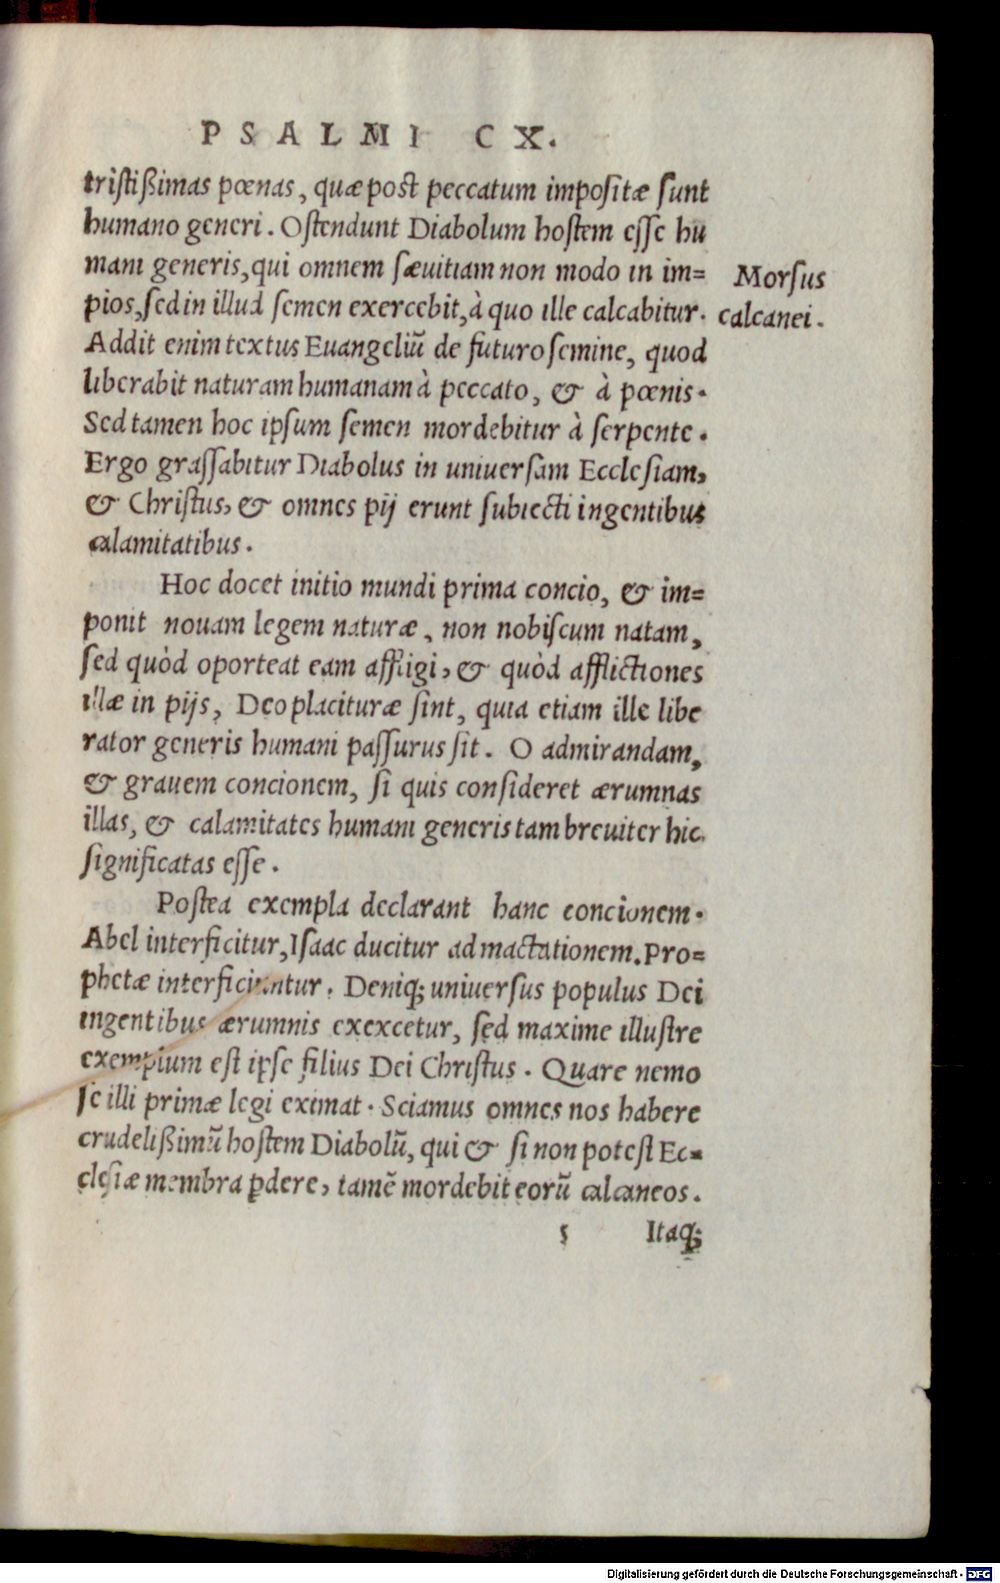 PSALMI CX.
tristißimas pœnas, quæ post peccatum impositæ sunt
humano generi. Ostendunt Diabolum hostem esse hu
mani generis, qui omnem sæuitiam non modo in im=
pios, sed in illud semen exercebit, à quo ille calcabitur.
Morsus
calcanei.
Addit enim textus Euangeliũ de futuro semine, quod
liberabit naturam humanam à peccato, & à pœnis.
Sed tamen hoc ipsum semen mordebitur à serpente.
Ergo grassabitur Diabolus in uniuersam Ecclesiam,
& Christus, & omnes pij erunt subiecti ingentibus
calamitatibus.
Hoc docet initio mundi prima concio, & im=
ponit nouam legem naturæ, non nobiscum natam,
sed quòd oporteat eam affligi, & quòd afflictiones
illæ in pijs, Deo placituræ sint, quia etiam ille libe
rator generis humani passurus sit. O admirandam,
& grauem concionem, si quis consideret ærumnas
illas, & calamitates humani generis tam breuiter hic
significatas esse.
Postea exempla declarant hanc concionem.
Abel interficitur, Isaac ducitur ad mactationem. Pro=
phetæ interficiuntur. Deniq; uniuersus populus Dei
ingentibus ærumnis exexcetur, sed maxime illustre
exemplum est ipse filius Dei Christus. Quare nemo
se illi primæ legi eximat. Sciamus omnes nos habere
crudelißimũ hostem Diabolũ, qui & si non potest Ec=
clesiæ membra ꝑdere, tamẽ mordebit eorũ calcaneos.
5 Itaq;
Digitalisierung gefördert durch die Deutsche Forschungsgemeinschaft - DFG